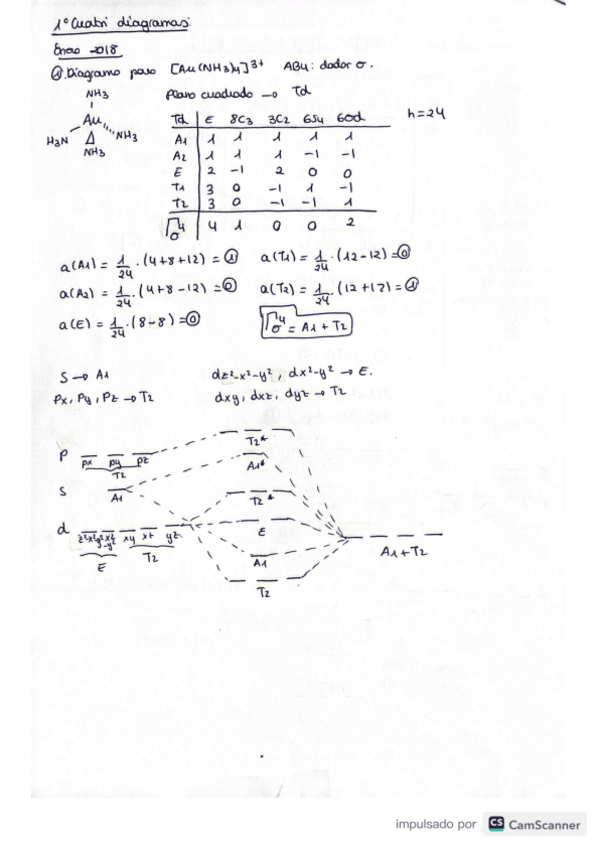 1º Cuatri diagramas:
Enero 2018
②.Diagrama para [Au(NH3)4]3+ AB4: dador σ.
Plano cuadrado → Td
NH3
Au
H3N
NH3
NH3
Td E 8C3 3C2 6S4 6σd h=24
A1 1 1 1 1 1
A2 1 1 1 -1 -1
E 2 -1 2 0 0
T1 3 0 -1 1 -1
T2 3 0 -1 -1 1
Γσ4 4 1 0 0 2
a(A1) = 1/24 · (4+8+12) = 1 a(T1) = 1/24 · (12-12) = 0
a(A2) = 1/24 · (4+8-12) = 0 a(T2) = 1/24 · (12+12) = 1
a(E) = 1/24 · (8-8) = 0 Γσ4 = A1 + T2
S → A1 dz2-x2-y2, dx2-y2 → E.
Px, Py, Pz → T2 dxy, dxz, dyz → T2
P px py pz T2 T2*
S A1 A1*
T2*
d xy xz yz E
E T2 A1 A1+T2
T2
impulsado por CS CamScanner